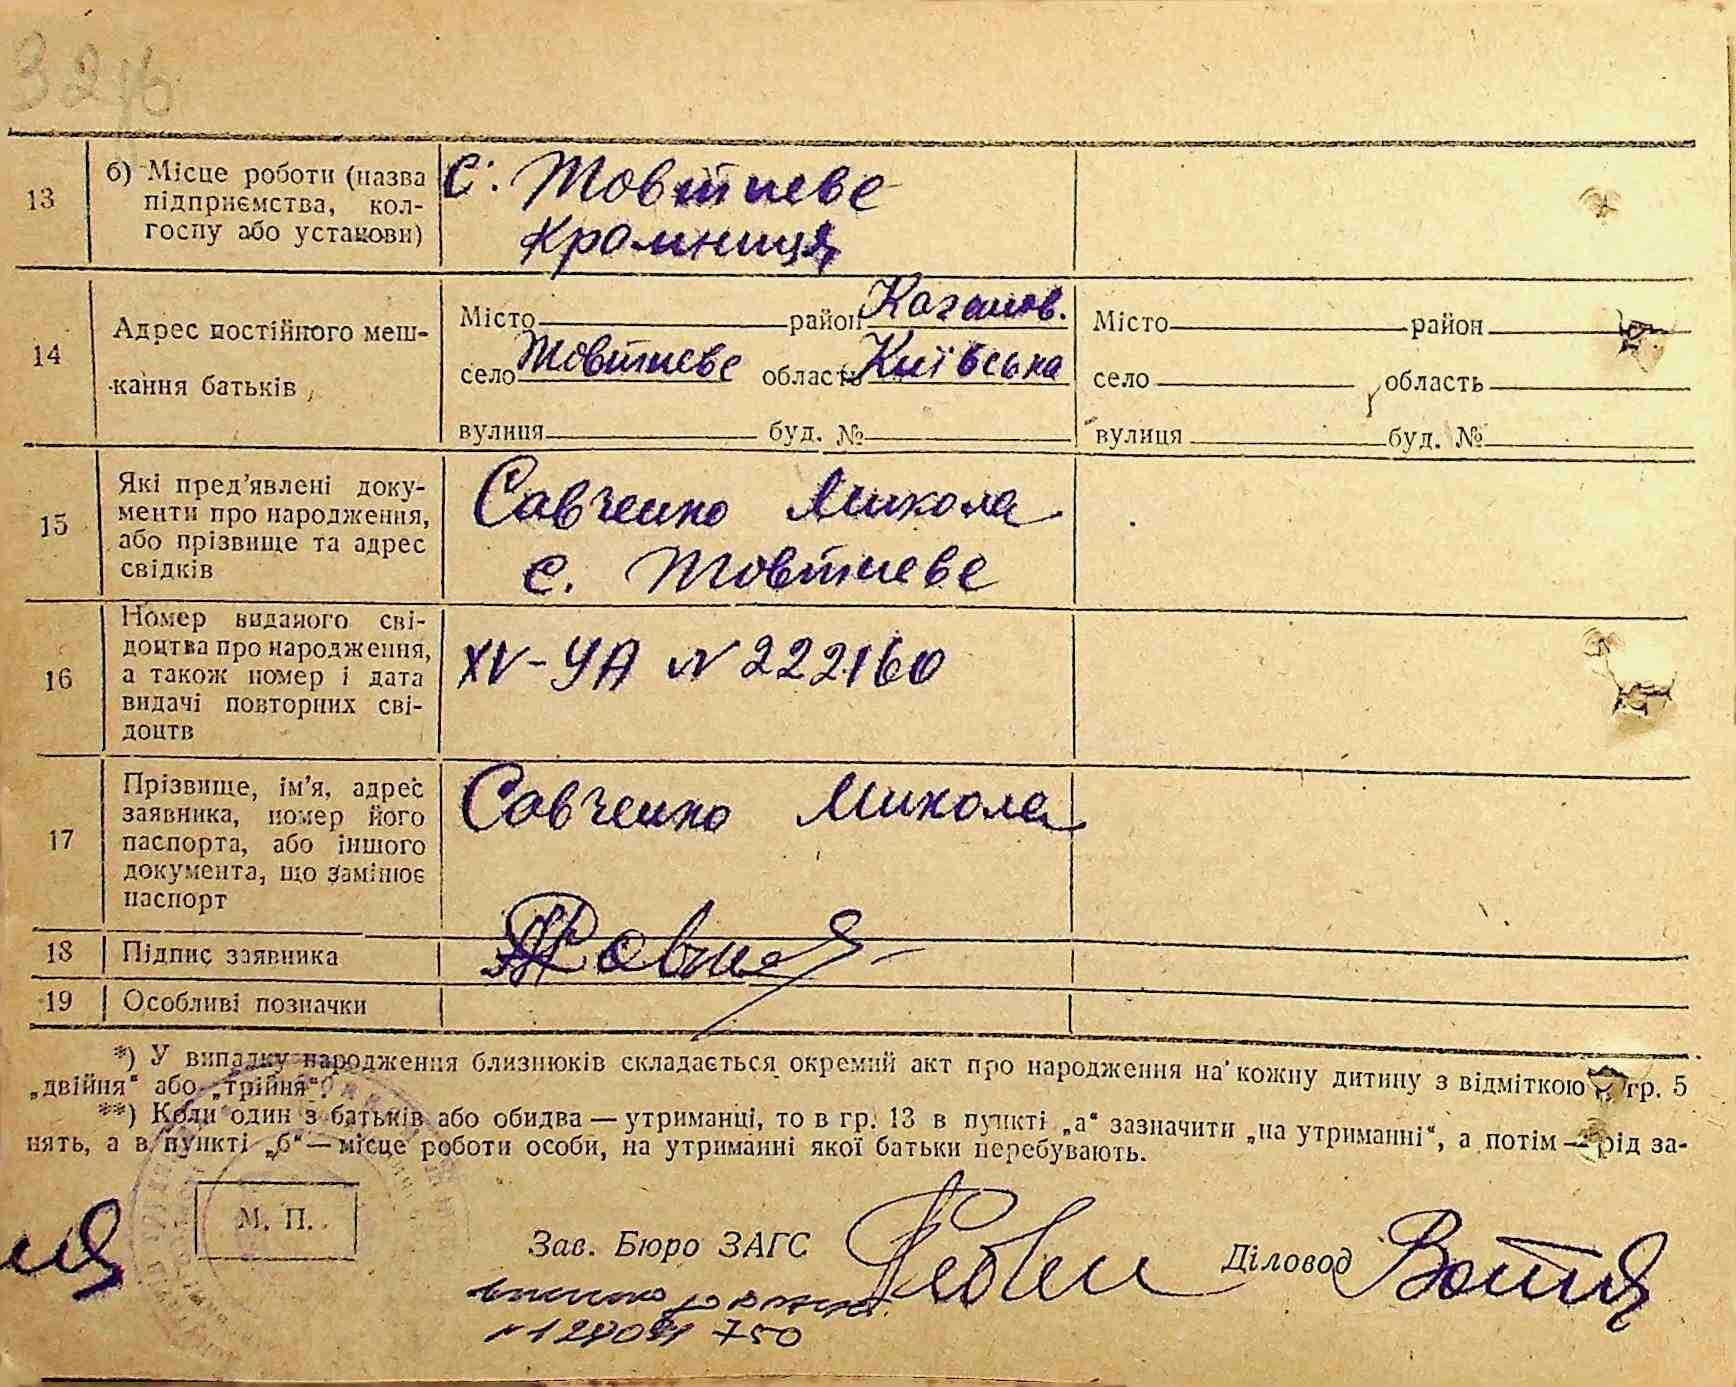 3216
13
б) Місце роботи (назва
підприємства, кол-
госпу або установи)
с. Жовтневе
Крамниця
14
Адрес постійного меш-
кання батьків
Місто район Каганов.
село Жовтневе область Київська
вулиця буд. №
Місто район
село область
вулиця буд. №
15
Які пред'явлені доку-
менти про народження,
або прізвище та адрес
свідків
Савченко Микола
с. Жовтневе
16
Номер виданого сві-
доцтва про народження,
а також номер і дата
видачі повторних сві-
доцтв
XV-УА N 222160
17
Прізвище, ім'я, адрес
заявника, номер його
паспорта, або іншого
документа, що замінює
паспорт
Савченко Микола
18
Підпис заявника
19
Особливі позначки
*) У випадку народження близнюків складається окремий акт про народження на кожну дитину з відміткою в гр. 5
„двійня“ або „трійня“.
**) Коли один з батьків або обидва — утриманці, то в гр. 13 в пункті „а“ зазначити „на утриманні“, а потім — рід за-
нять, а в пункті „б“ — місце роботи особи, на утриманні якої батьки перебувають.
М. П.
Зав. Бюро ЗАГС
Діловод